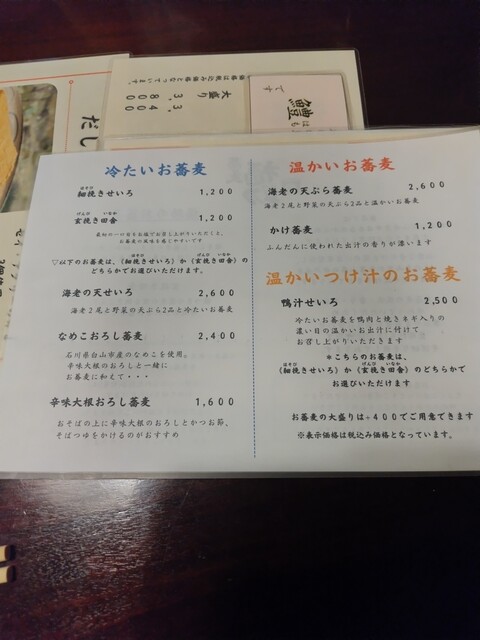 冷たいお蕎麦
細挽きせいろ 1,200
玄挽き田舎 1,200
最初の一口目をお塩でお召し上がりいただくと、
お蕎麦の風味を感じやすいです
▽以下のお蕎麦は、《細挽きせいろ》か《玄挽き田舎》の
どちらかでお選びいただけます。
海老の天せいろ 2,600
海老2尾と野菜の天ぷら2品と冷たいお蕎麦
なめこおろし蕎麦 2,400
石川県白山市産のなめこを使用。
辛味大根のおろしと一緒に
お蕎麦に和えて・・・
辛味大根おろし蕎麦 1,600
おそばの上に辛味大根のおろしとかつお節。
そばつゆをかけるのがおすすめ
温かいお蕎麦
海老の天ぷら蕎麦 2,600
海老2尾と野菜の天ぷら2品と温かいお蕎麦
かけ蕎麦 1,200
ふんだんに使われた出汁の香りが漂います
温かいつけ汁のお蕎麦
鴨汁せいろ 2,500
冷たいお蕎麦を鴨肉と焼きネギ入りの
濃い目の温かいお出汁に付けて
お召し上がりいただきます
*こちらのお蕎麦は、
《細挽きせいろ》か《玄挽き田舎》のどちらかで
お選びいただけます
お蕎麦の大盛りは+400でご用意できます
※表示価格は税込み価格となっています。
大盛り
3,400
3,800
です
だし